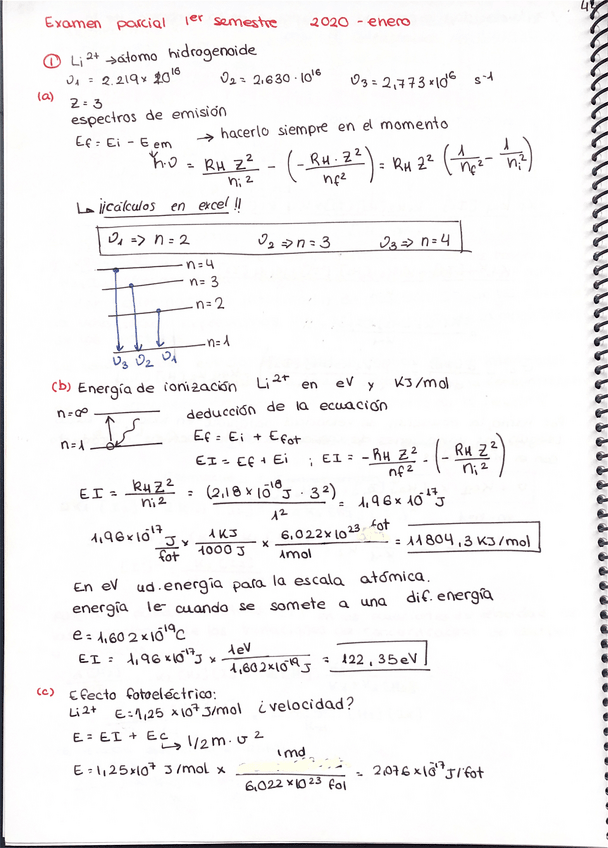 4
Examen parcial 1er semestre 2020 - enero
① Li²⁺ → átomo hidrogenoide
υ1 = 2.219 × 10¹⁶ υ2 = 2,630 · 10¹⁶ υ3 = 2,773 × 10¹⁶ s⁻¹
(a) Z = 3
espectros de emisión
Ef = Ei - Eem → hacerlo siempre en el momento
h·υ = RH Z²/ni² - (- RH · Z²/nf²) = RH Z² (1/nf² - 1/ni²)
↳ ¡¡cálculos en excel!!
υ1 => n = 2 υ2 => n = 3 υ3 => n = 4
n = 4
n = 3
n = 2
n = 1
υ3 υ2 υ1
(b) Energía de ionización Li²⁺ en eV y KJ/mol
n = ∞ deducción de la ecuación
n = 1 Ef = Ei + Efot
EI = Ef + Ei ; EI = - RH Z²/nf² - (- RH Z²/ni²)
EI = RH Z²/ni² = (2,18 × 10⁻¹⁸ J · 3²)/1² = 1,96 × 10⁻¹⁷ J
1,96 × 10⁻¹⁷ J/fot × 1 KJ/1000 J × 6,022 × 10²³ fot/1mol = 11804,3 KJ/mol
En eV ud. energía para la escala atómica.
energía 1e⁻ cuando se somete a una dif. energía
e = 1,602 × 10⁻¹⁹ C
EI = 1,96 × 10⁻¹⁷ J × 1eV/1,602 × 10⁻¹⁹ J = 122,35 eV
(c) Efecto fotoeléctrico:
Li²⁺ E = 1,25 × 10⁷ J/mol ¿velocidad?
E = EI + Ec ↳ 1/2 m · υ²
E = 1,25 × 10⁷ J/mol × 1mol/6,022 × 10²³ fot = 2,076 × 10⁻¹⁷ J/fot